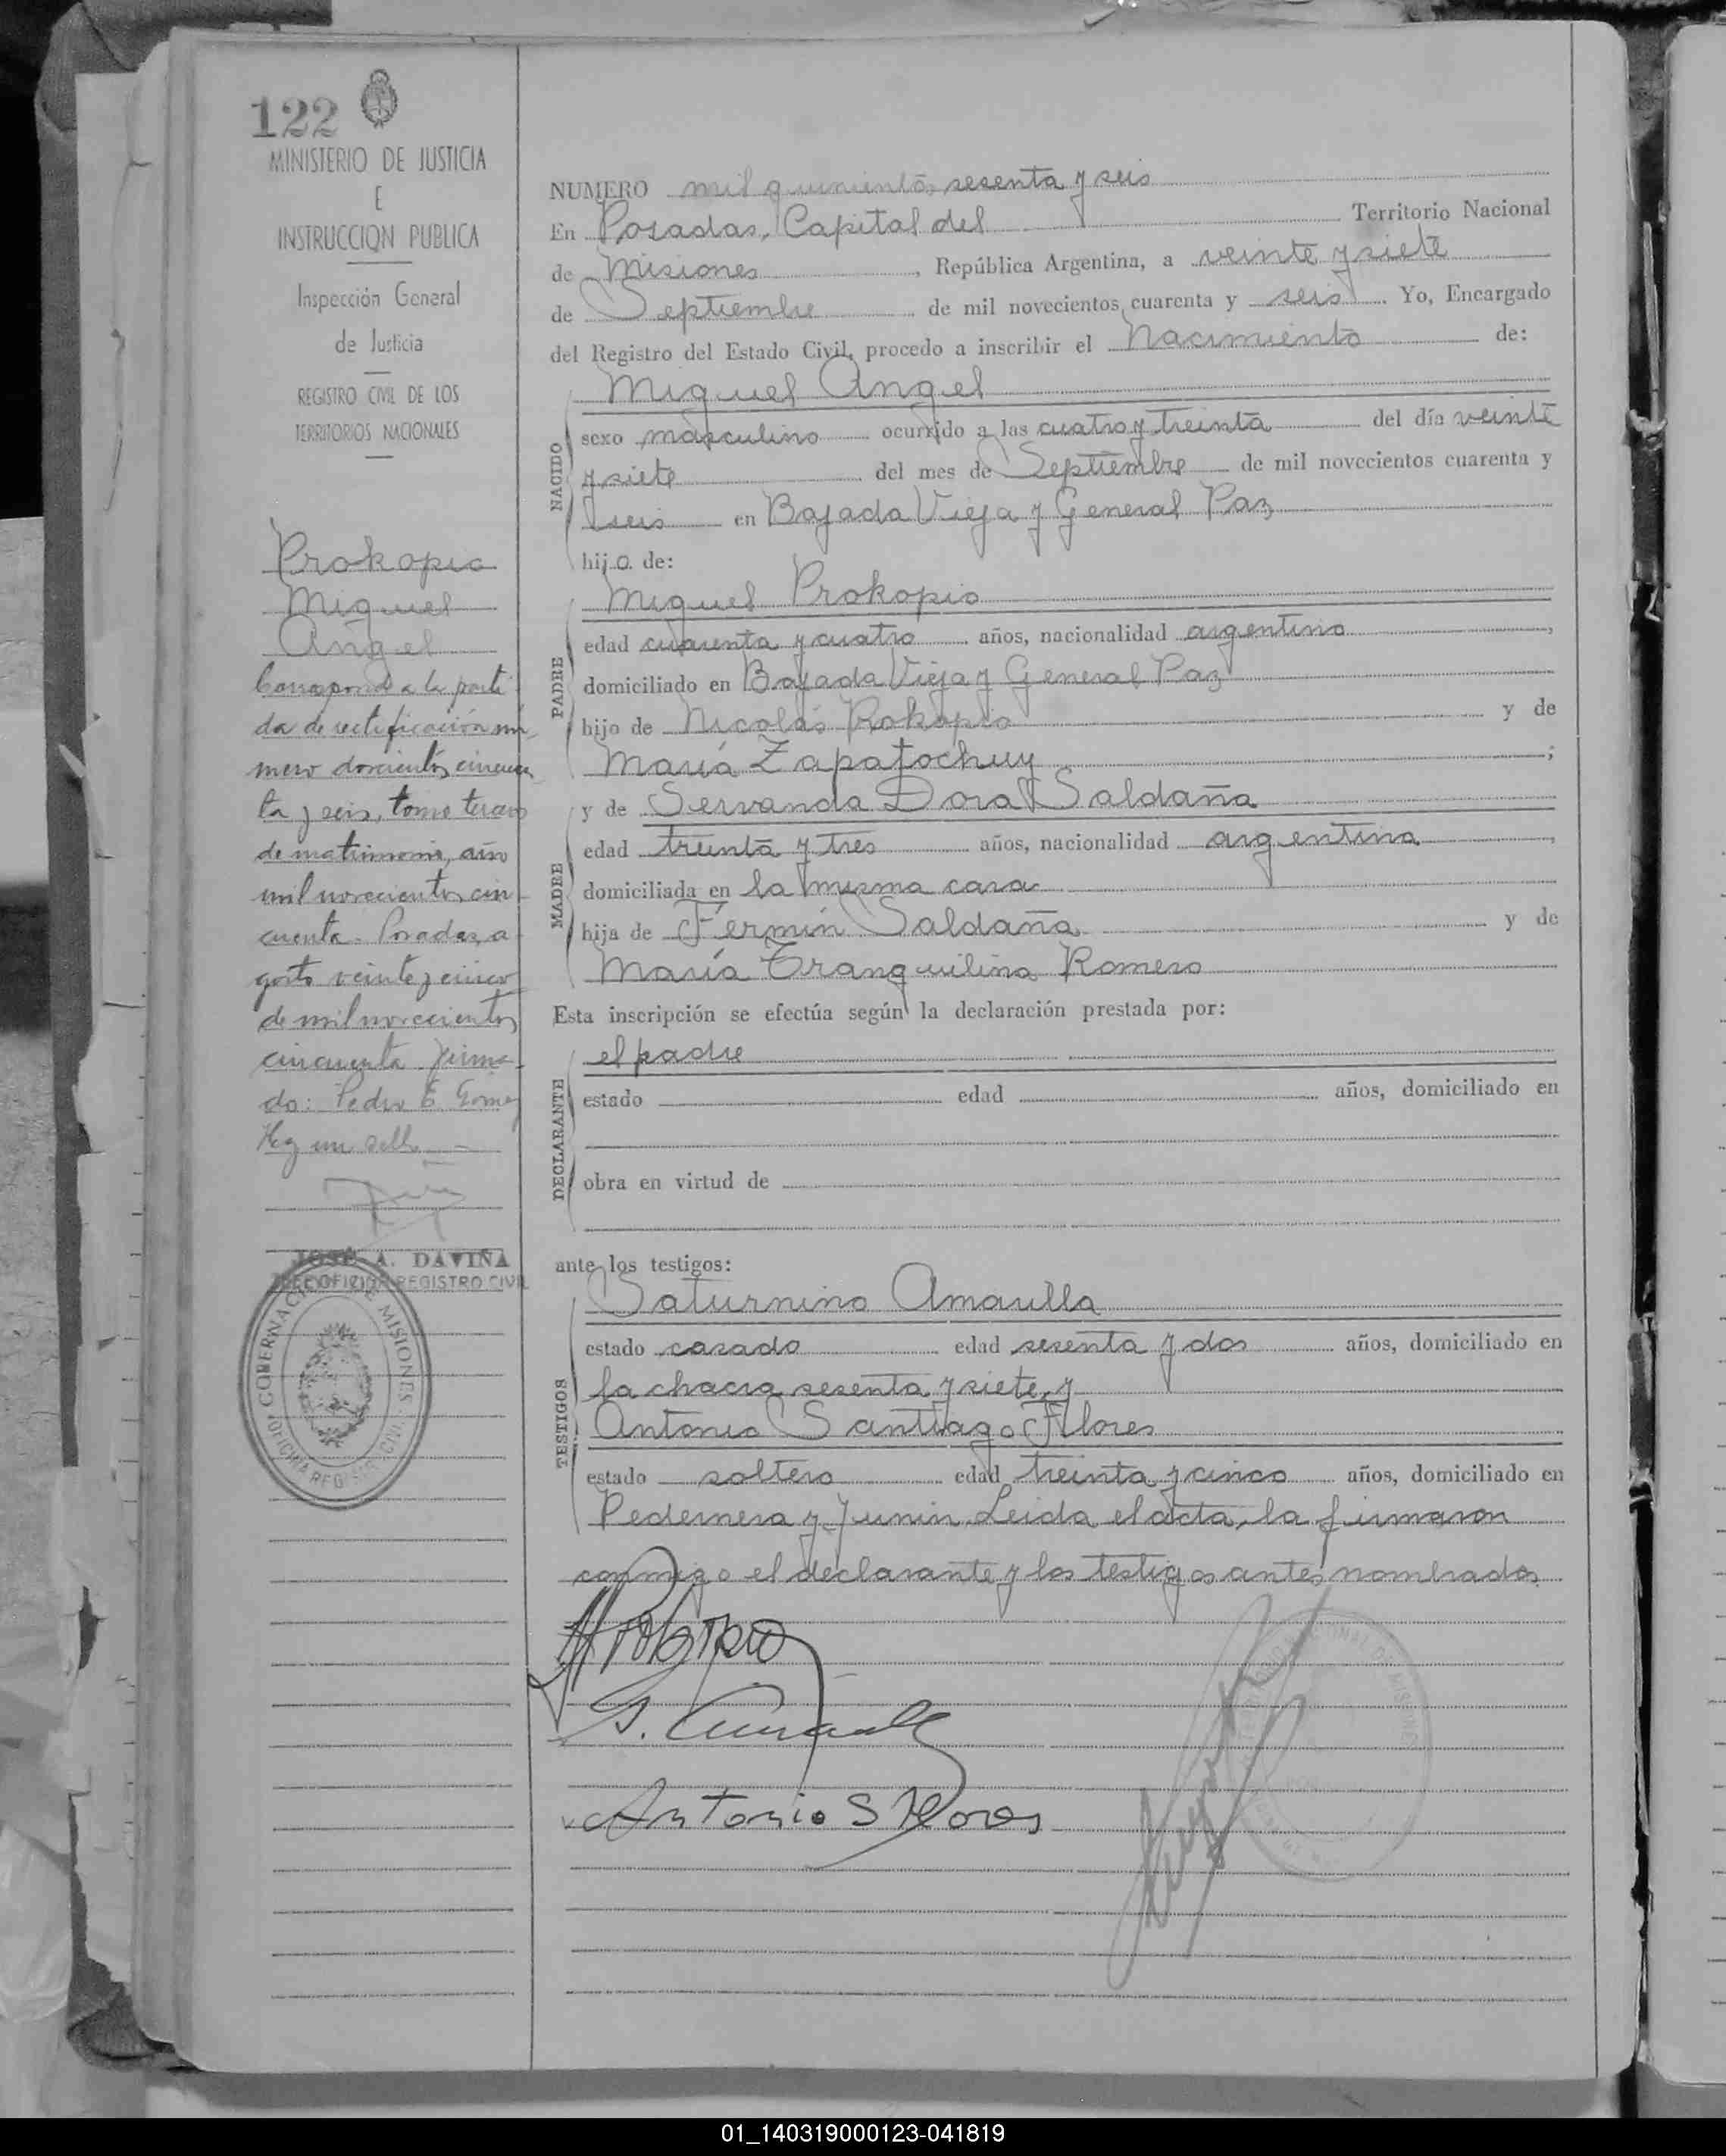 122
MINISTERIO DE JUSTICIA
E
INSTRUCCION PUBLICA
Inspección General
de Justicia
REGISTRO CIVIL DE LOS
TERRITORIOS NACIONALES
Prokopio
Miguel
Angel
Corresponde a la parti
da de rectificación nú
mero doscientos cincuen
ta y seis, tomo tercero
de matrimonio, año
mil novecientos cin
cuenta. Posadas, a
gosto veinte y cinco
de mil novecientos
cincuenta. Firma
do: Pedro E. Gomez
Hay un sello
JOSÉ A. DAVIÑA
JEFE OFICINA REGISTRO CIVIL
GOBERNACION DE MISIONES
OFICINA REGISTRO CIVIL
NUMERO mil quinientos sesenta y seis
En Posadas, Capital del Territorio Nacional
de Misiones, República Argentina, a veinte y siete
de Septiembre de mil novecientos cuarenta y seis. Yo, Encargado
del Registro del Estado Civil, procedo a inscribir el Nacimiento de:
Miguel Angel
NACIDO
sexo masculino ocurrido a las cuatro y treinta del día veinte
y siete del mes de Septiembre de mil novecientos cuarenta y
seis en Bajada Vieja y General Paz
hijo de:
Miguel Prokopio
PADRE
edad cuarenta y cuatro años, nacionalidad argentino,
domiciliado en Bajada Vieja y General Paz
hijo de Nicolás Prokopio y de
María Zapatochuy;
y de Servanda Dora Saldaña
MADRE
edad treinta y tres años, nacionalidad argentina,
domiciliada en la misma casa
hija de Fermín Saldaña y de
María Tranquilina Romero
Esta inscripción se efectúa según la declaración prestada por:
el padre
DECLARANTE
estado edad años, domiciliado en
obra en virtud de
ante los testigos:
Saturnino Amarilla
TESTIGOS
estado casado edad sesenta y dos años, domiciliado en
la chacra sesenta y siete, y
Antonio Santiago Flores
estado soltero edad treinta y cinco años, domiciliado en
Pedernera y Junin. Leida el acta, la firmaron
conmigo el declarante y los testigos antes nombrados.
S. Amarilla
Antonio S Flores
01_140319000123-041819